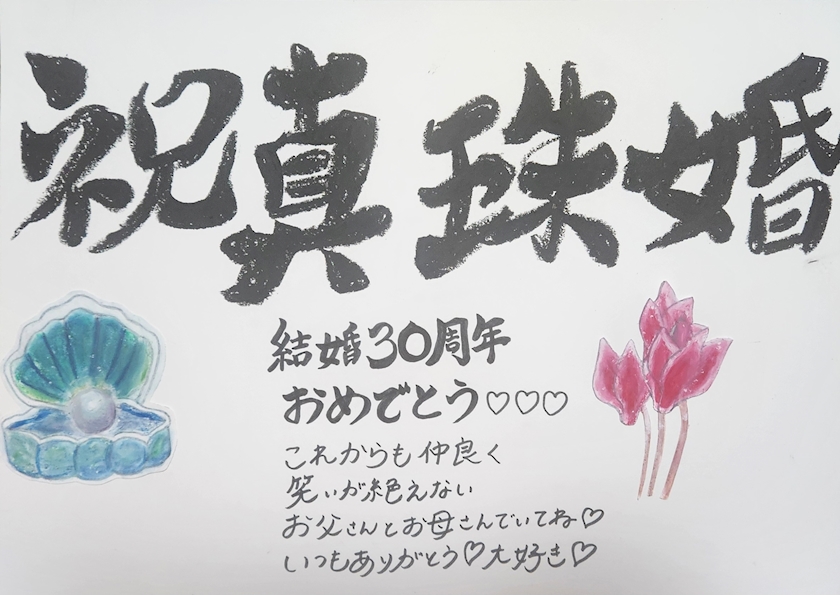 祝真珠婚
結婚30周年
おめでとう♡♡♡
これからも仲良く
笑いが絶えない
お父さんとお母さんでいてね♡
いつもありがとう♡大好き♡